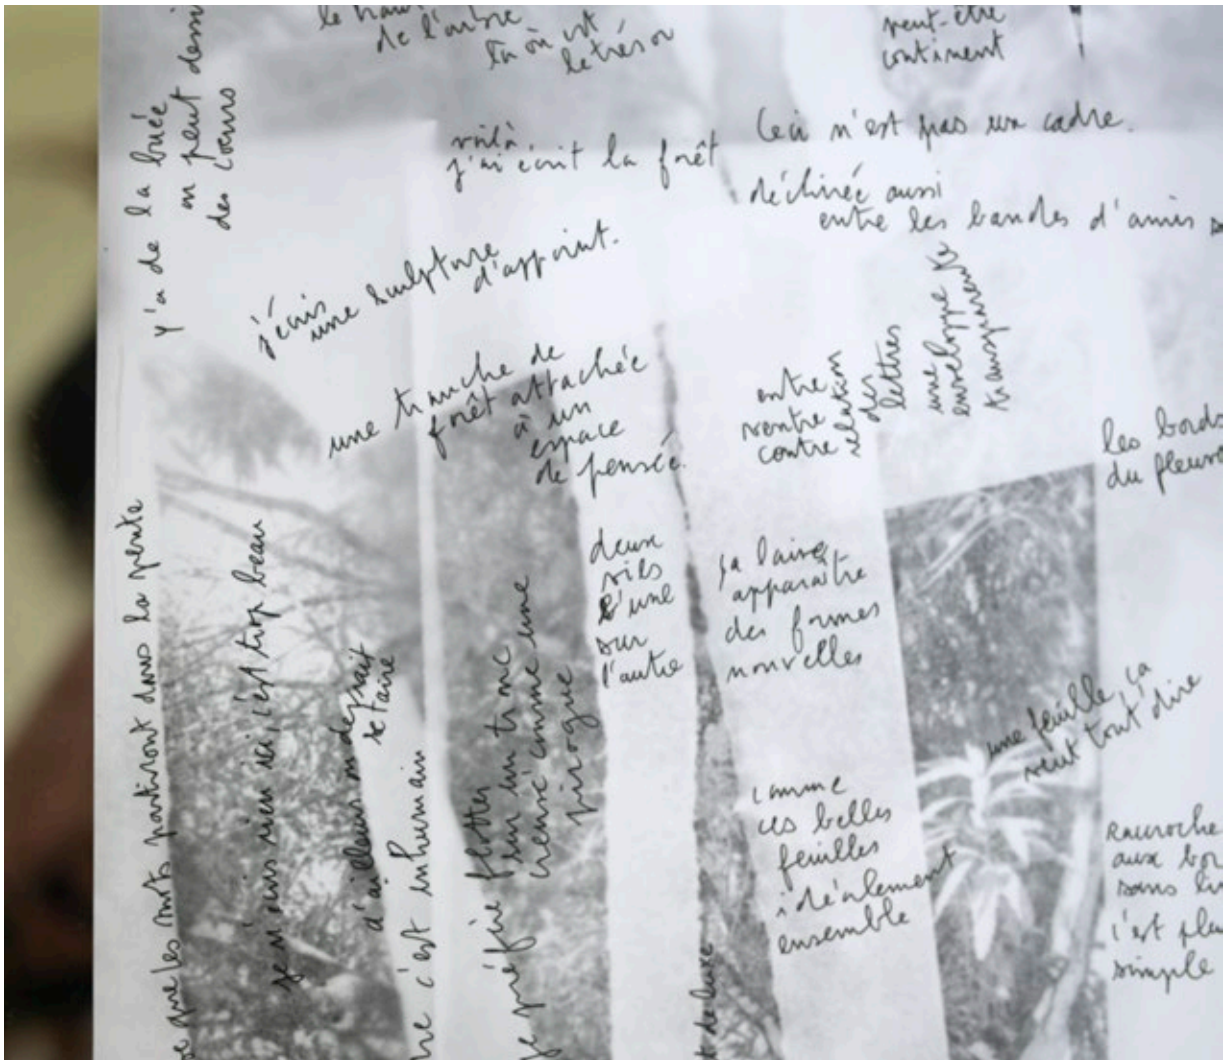 de l'arbre
là où est
le trésor
peut-être
continent
y'a de la buée
on peut dessi
des cœurs
voilà
j'ai écrit la forêt
Ceci n'est pas un cadre.
déclinée aussi
entre les bandes d'amis
j'écris
une sculpture
d'appoint.
une tranche de
forêt attachée
à un
espace
de pensée.
entre
ventre
contre
des
lettres
une enveloppe
enveloppe
transparen
les bords
du fleuve
deux
sur
l'autre
ça laisse
apparaître
des formes
nouvelles
une feuille, ça
veut tout dire
comme
ces belles
feuilles
idéalement
ensemble
que les mots partiront dans la pente
je n'écris rien ici, c'est trop beau
d'ailleurs on devrait
se taire
c'est inhumain
je préfère flotter
sur un tronc
creusé comme une
pirogue
Raccroche
aux bor
sans
c'est plu
simple